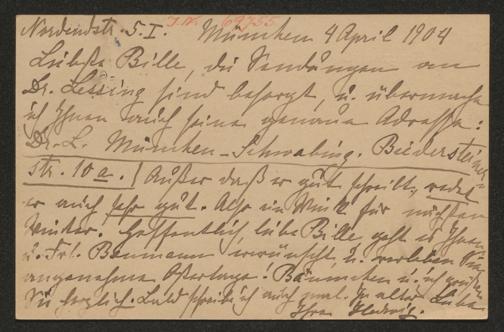 Nordendstr. 5. I. J.N. 69755 München 4 April 1904
Liebste Bille, die Sendungen an
Dr. Lessing sind besorgt, u. übermache
ich Ihnen auch seine genaue Adresse:
Dr. L. München-Schwabing. Biedersteiner-
str. 10a.) Außer daß er gut schreibt, redet
er auch sehr gut. Also ein Wink für nächsten
Winter. Hoffentlich liebe Bille geht es Ihnen
u. Frl. Baumann erwünscht, u. verleben Sie
angenehme Ostertage! Bäumchen u. ich grüßen
Sie herzlich. Bald schreib ich auch mal. In alter Liebe
Ihre Hedwig.